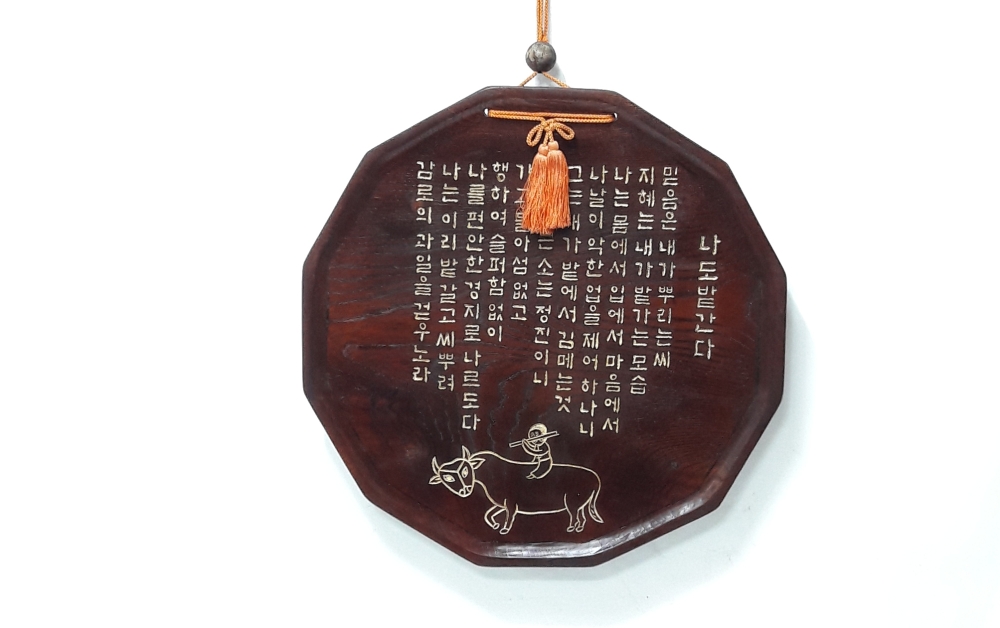 나도 밭 간다
믿음은 내가 뿌리는 씨
지혜는 내가 밭가는 모습
나는 몸에서 입에서 마음에서
나날이 악한 업을 제어하나니
그는 내가 밭에서 김메는 것
소는 정진이니
돌아섬 없고
행하여 슬퍼함 없이
나를 편안한 경지로 나르도다
나는 이리 밭 갈고 씨 뿌려
감로의 과일을 걷우노라